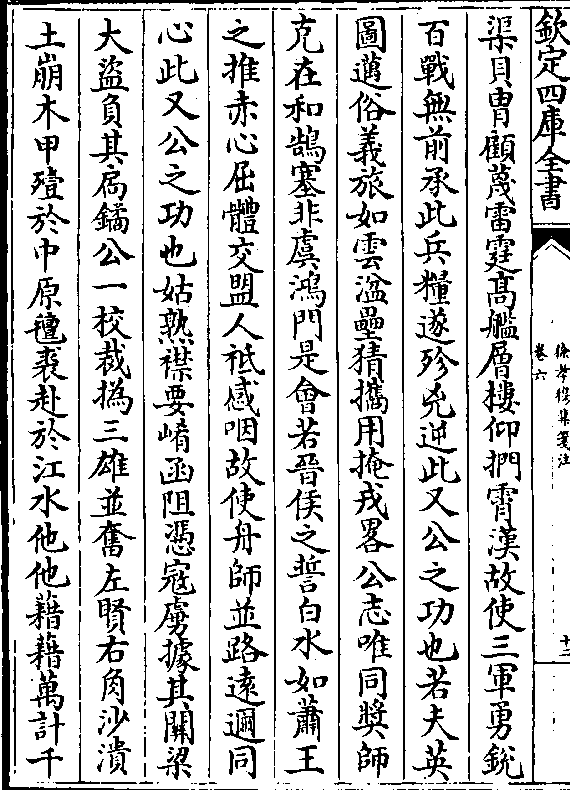 欽定四庫全書
徐孝穆集箋注
卷六
十二
渠貝胄顧蔑雷霆高艦層樓仰捫霄漢故使三軍勇銳
百戰無前承此兵糧遂殄兇逆此又公之功也若夫英
圖邁俗義旅如雲湓壘猜攜用掩戎畧公志唯同奬師
克在和鵠塞非虞鴻門是會若晉侯之誓白水如蕭王
之推赤心屈體交盟人祗感咽故使舟師並路遠邇同
心此又公之功也姑熟襟要崤函阻憑寇虜據其關梁
大盜負其扃鐍公一校裁撝三雄並奮左賢右角沙潰
土崩木甲殪於中原氊裘赴於江水他他藉藉萬計千